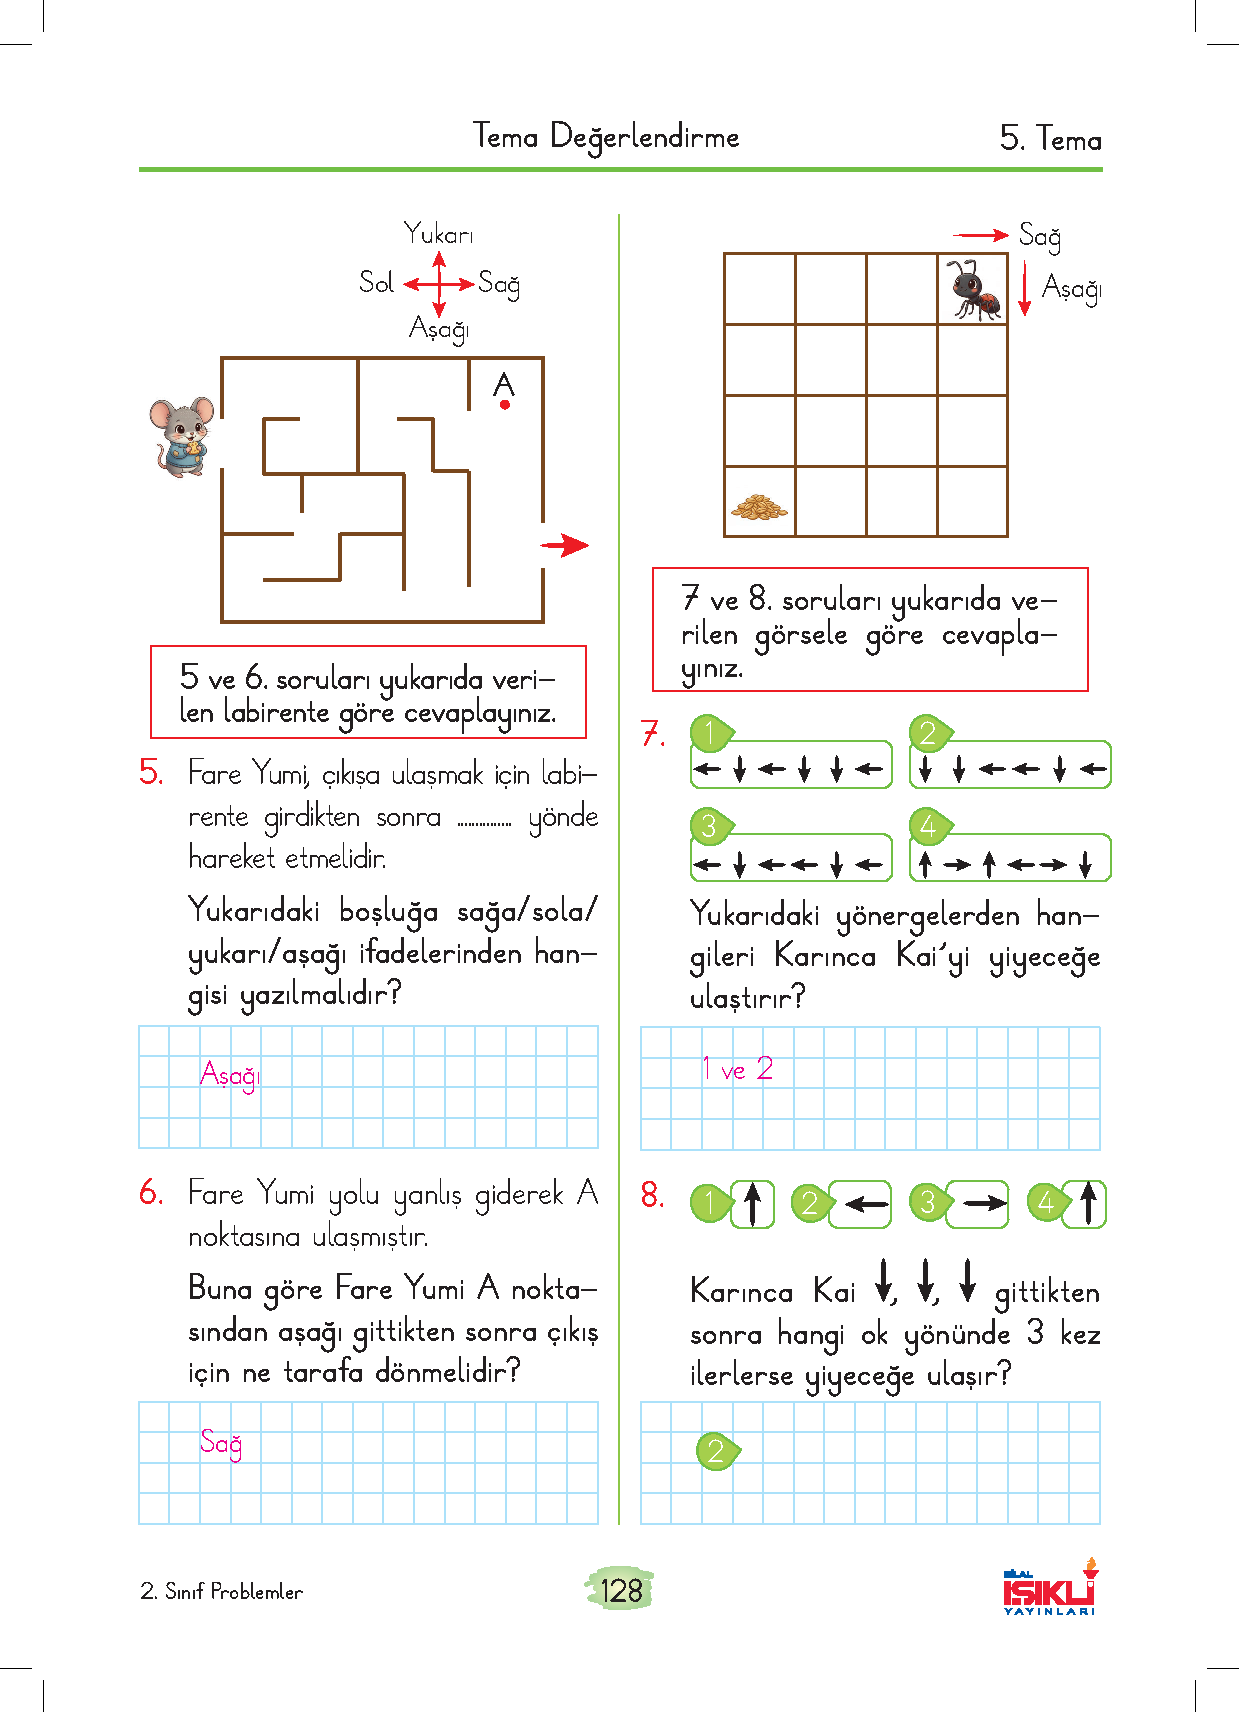 Tema Değerlendirme
5. Tema
Yukarı
Sol
Sağ
Aşağı
A
5 ve 6. soruları yukarıda veri-
len labirente göre cevaplayınız.
5. Fare Yumi, çıkışa ulaşmak için labi-
rente girdikten sonra ............... yönde
hareket etmelidir.
Yukarıdaki boşluğa sağa/sola/
yukarı/aşağı ifadelerinden han-
gisi yazılmalıdır?
Aşağı
6. Fare Yumi yolu yanlış giderek A
noktasına ulaşmıştır.
Buna göre Fare Yumi A nokta-
sından aşağı gittikten sonra çıkış
için ne tarafa dönmelidir?
Sağ
Sağ
Aşağı
7 ve 8. soruları yukarıda ve-
rilen görsele göre cevapla-
yınız.
7. 1 2
← ↓ ← ↓ ↓ ← ↓ ↓ ← ← ↓ ←
3 4
← ↓ ← ← ↓ ← ↑ → ↑ ← → ↓
Yukarıdaki yönergelerden han-
gileri Karınca Kai'yi yiyeceğe
ulaştırır?
1 ve 2
8. 1 ↑ 2 ← 3 → 4 ↑
Karınca Kai ↓, ↓, ↓ gittikten
sonra hangi ok yönünde 3 kez
ilerlerse yiyeceğe ulaşır?
2
2. Sınıf Problemler
128
BİLAL
IŞIKLI
YAYINLARI